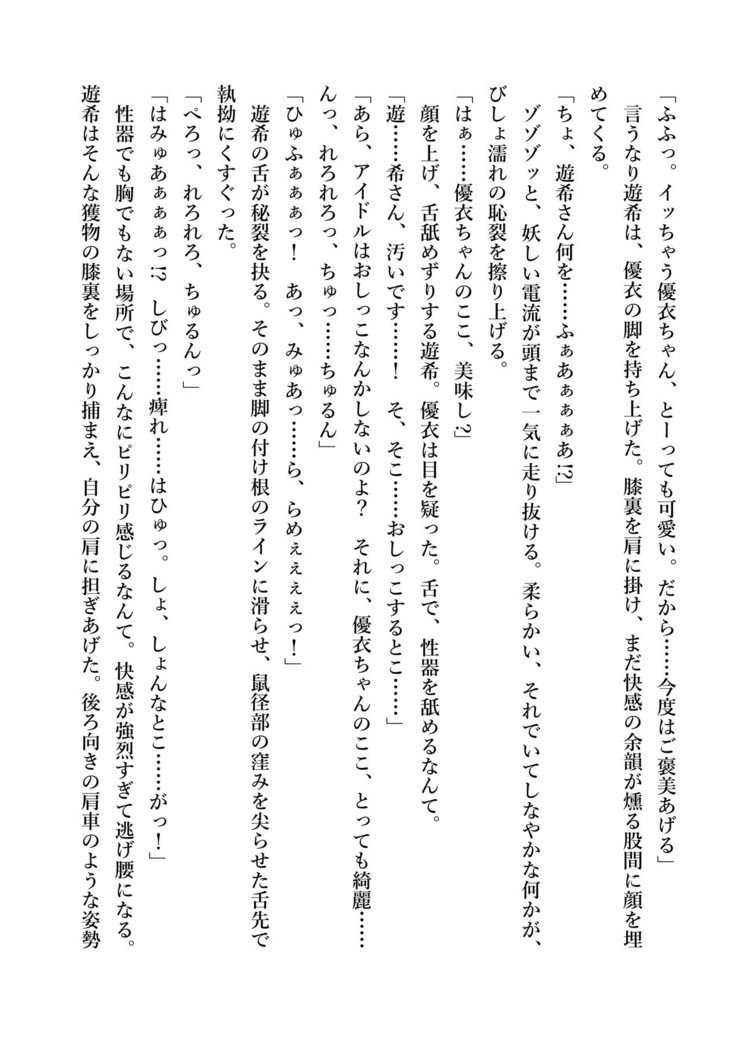 「ふふっ。イッちゃう優衣ちゃん、とーっても可愛い。だから……今度はご褒美あげる」
　言うなり遊希は、優衣の脚を持ち上げた。膝裏を肩に掛け、まだ快感の余韻が燻る股間に顔を埋
めてくる。
「ちょ、遊希さん何を……ふぁあぁぁぁあ!?」
　ゾゾゾッと、妖しい電流が頭まで一気に走り抜ける。柔らかい、それでいてしなやかな何かが、
びしょ濡れの恥裂を擦り上げる。
「はぁ……優衣ちゃんのここ、美味し?」
　顔を上げ、舌舐めずりする遊希。優衣は目を疑った。舌で、性器を舐めるなんて。
「遊……希さん、汚いです……！　そ、そこ……おしっこするとこ……」
「あら、アイドルはおしっこなんかしないのよ？　それに、優衣ちゃんのここ、とっても綺麗……
んっ、れろれろっ、ちゅっ……ちゅるん」
「ひゅふぁぁぁっ！　あっ、みゅあっ……ら、らめぇぇぇぇっ！」
　遊希の舌が秘裂を抉る。そのまま脚の付け根のラインに滑らせ、鼠径部の窪みを尖らせた舌先で
執拗にくすぐった。
「ぺろっ、れろれろ、ちゅるんっ」
「はみゅあぁぁぁっ!?　しびっ……痺れ……はひゅっ。しょ、しょんなとこ……がっ！」
　性器でも胸でもない場所で、こんなにピリピリ感じるなんて。快感が強烈すぎて逃げ腰になる。
遊希はそんな獲物の膝裏をしっかり捕まえ、自分の肩に担ぎあげた。後ろ向きの肩車のような姿勢